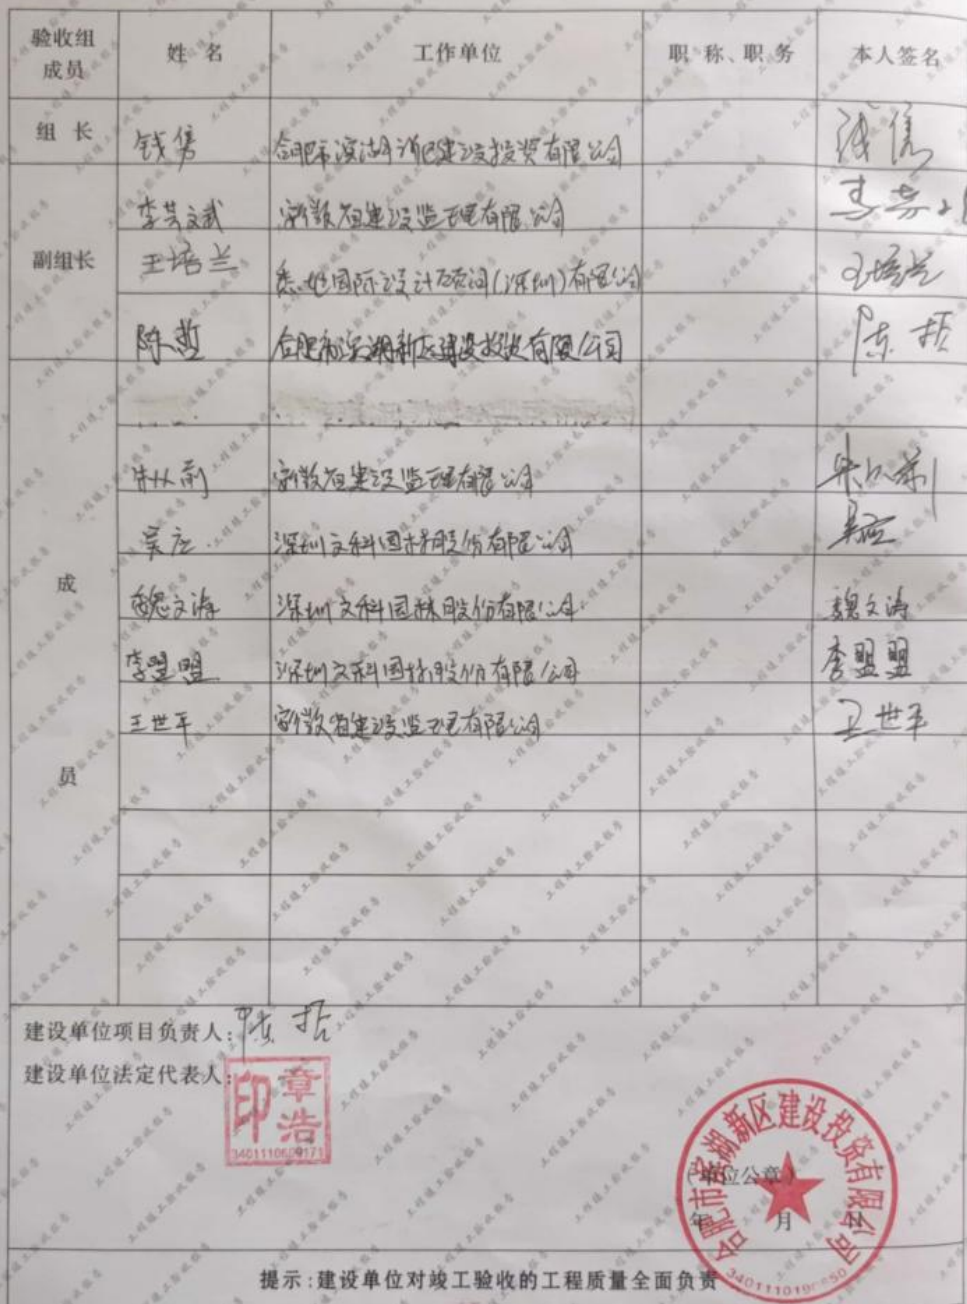 验收组成员 姓 名 工作单位 职 称、职 务 本人签名
组 长 钱隽 合肥市滨湖新区建设投资有限公司 钱隽
李芸文武 安徽省建设监理有限公司
副组长 王培兰 国际设计顾问(深圳)有限公司 王培兰
陈哲 合肥市滨湖新区建设投资有限公司 陈哲
安徽省建设监理有限公司
吴应 深圳文科园林股份有限公司 吴应
成 魏文海 深圳文科园林股份有限公司 魏文海
李盟盟 深圳文科园林股份有限公司 李盟盟
王世平 安徽省建设监理有限公司 王世平
员
建设单位项目负责人: 陈哲
建设单位法定代表人:
章浩印
合肥市滨湖新区建设投资有限公司
(单位公章)
年 月 日
提示:建设单位对竣工验收的工程质量全面负责
工程竣工验收报告